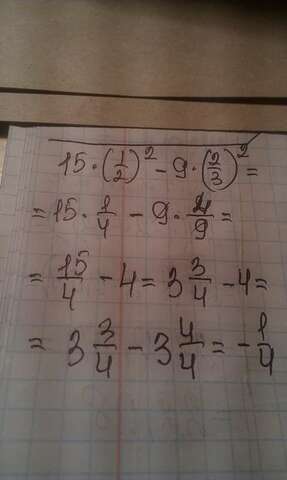 15·(1/2)²-9·(2/3)²=
=15·1/4-9·4/9=
=15/4-4=3 3/4-4=
=3 3/4-3 4/4=-1/4